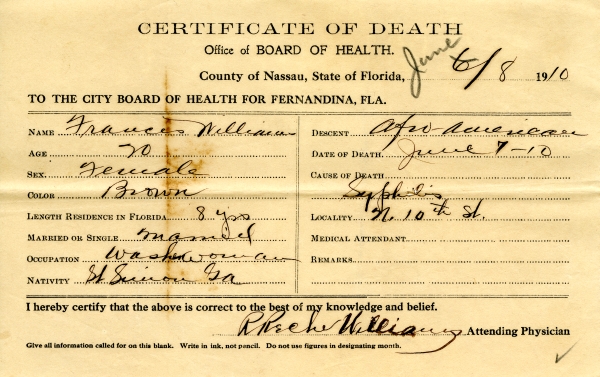 CERTIFICATE OF DEATH
Office of BOARD OF HEALTH.
County of Nassau, State of Florida, June 6/8 1910
TO THE CITY BOARD OF HEALTH FOR FERNANDINA, FLA.
NAME Frances Williams
AGE 70
SEX. Female
COLOR Brown
LENGTH RESIDENCE IN FLORIDA 8 yrs
MARRIED OR SINGLE married
OCCUPATION Washwoman
NATIVITY St Simon Ga
DESCENT Afro American
DATE OF DEATH June 7-10
CAUSE OF DEATH
Syphilis
LOCALITY N. 10th St.
MEDICAL ATTENDANT
REMARKS
I hereby certify that the above is correct to the best of my knowledge and belief.
Williams Attending Physician
Give all information called for on this blank. Write in ink, not pencil. Do not use figures in designating month.